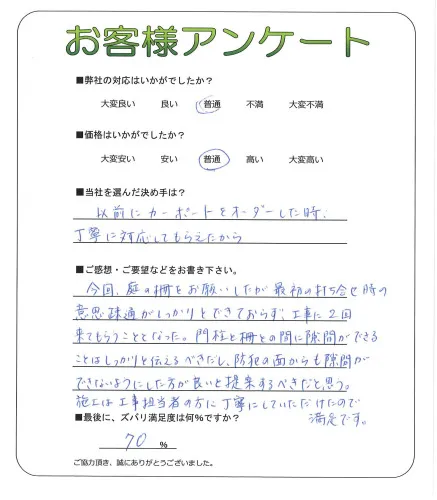 お客様アンケート
■弊社の対応はいかがでしたか?
大変良い 良い 普通 不満 大変不満
■価格はいかがでしたか?
大変安い 安い 普通 高い 大変高い
■当社を選んだ決め手は?
以前にカーポートをオーダーした時、
丁寧に対応してもらえたから
■ご感想・ご要望などをお書き下さい。
今回、庭の柵をお願いしたが最初の打ち合せ時の
意思疎通がしっかりとできておらず、工事に2回
来てもらうこととなった。門柱と柵との間に隙間ができる
ことはしっかりと伝えるべきだし、防犯の面からも隙間が
できないようにした方が良いと提案するべきだと思う。
施工は工事担当者の方に丁寧にしていただけたので
満足です。
■最後に、ズバリ満足度は何%ですか?
70 %
ご協力頂き、誠にありがとうございました。